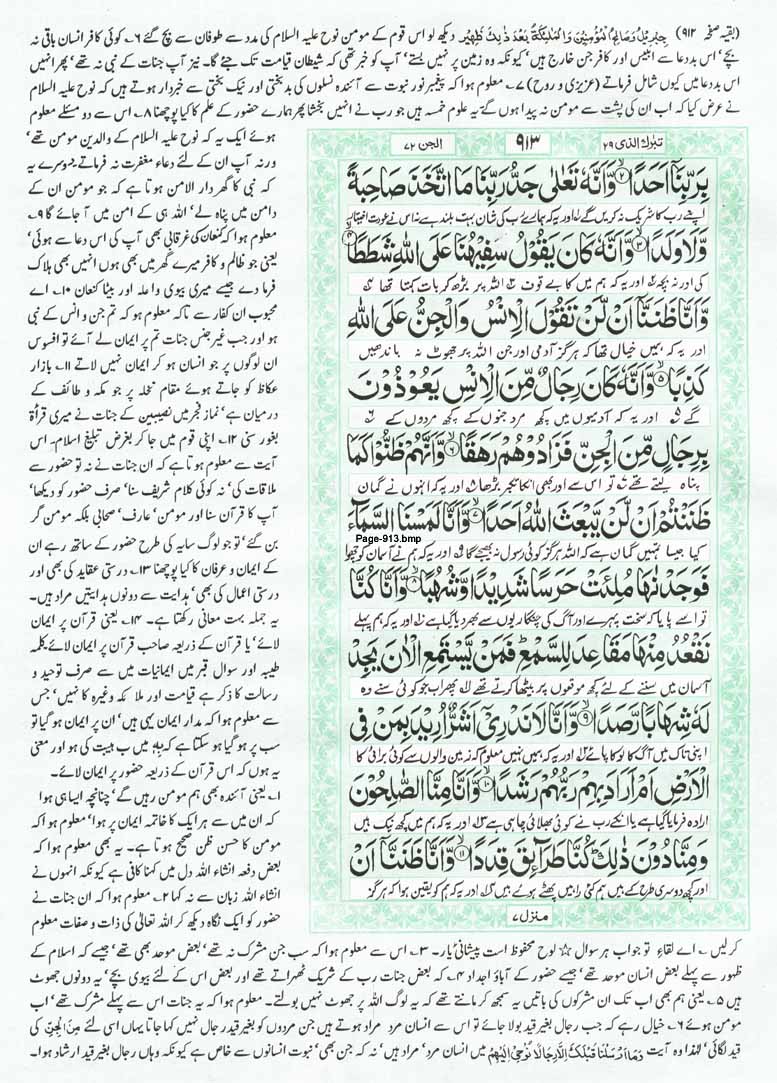 (بقیہ صفحہ ۹۱۲) جِبْرِیْلُ وَصَالِحُ الْمُؤْمِنِیْنَ وَالْمَلٰٓئِکَۃُ بَعْدَ ذٰلِکَ ظَهِیْرٌ دیکھ لو اس قوم کے مومن نوح علیہ السلام کی مدد سے طوفان سے بچ گئے ۶۔ کوئی کافر انسان باقی نہ
بچے' اس بددعا سے ابلیس اور کافر جن خارج ہیں' کیونکہ وہ زمین پر نہیں بستے' آپ کو خبر تھی کہ شیطان قیامت تک جئے گا۔ نیز آپ جنات کے نبی نہ تھے' پھر انہیں
اس بددعا میں کیوں شامل فرماتے (عزیزی و روح) ۷۔ معلوم ہوا کہ پیغمبر نور نبوت سے آئندہ نسلوں کی بدبختی اور نیک بختی سے خبردار ہوتے ہیں کہ نوح علیہ السلام
نے عرض کیا کہ اب ان کی پشت سے مومن نہ پیدا ہوں گے یہ علوم خمسہ ہیں جو رب نے انہیں بخشا پھر ہمارے حضور کے علم کا کیا پوچھنا ۸۔ اس سے دو مسئلے معلوم
ہوئے ایک یہ کہ نوح علیہ السلام کے والدین مومن تھے'
ورنہ آپ ان کے لئے دعاء مغفرت نہ فرماتے دوسرے یہ
کہ نبی کا گھر دار الامن ہوتا ہے کہ جو مومن ان کے
دامن میں پناہ لے' اللہ ہی کے امن میں آ جائے گا ۹۔
معلوم ہوا کہ کنعان کی غرقابی بھی آپ کی اس دعا سے ہوئی'
یعنی جو ظالم و کافر میرے گھر میں بھی ہوں انہیں بھی ہلاک
فرما دے جیسے میری بیوی واعلہ اور بیٹا کنعان ۱۰۔ اے
محبوب ان کفار سے تاکہ معلوم ہو کہ تم جن و انس کے نبی
ہو اور جب غیر جنس جنات تم پر ایمان لے آئے تو افسوس
ان لوگوں پر جو انسان ہو کر ایمان نہیں لاتے ۱۱۔ بازار
عکاظ کو جاتے ہوئے مقام نخلہ پر جو مکہ و طائف کے
درمیان ہے' نماز فجر میں نصیبین کے جنات نے میری قرأۃ
بغور سنی ۱۲۔ اپنی قوم میں جا کر بغرض تبلیغ اسلام۔ اس
آیت سے معلوم ہوتا ہے کہ ان جنات نے نہ تو حضور سے
ملاقات کی' نہ کوئی کلام شریف سنا' صرف حضور کو دیکھا'
آپ کا قرآن سنا اور مومن' عارف' صحابی بلکہ مومن گر
بن گئے' تو جو لوگ سایہ کی طرح حضور کے ساتھ رہے ان
کے ایمان و عرفان کا کیا پوچھنا ۱۳۔ درستی عقاید کی بھی' اور
درستی اعمال کی بھی' ہدایت سے دونوں ہدایتیں مراد ہیں۔
یہ جملہ بہت معانی رکھتا ہے۔ ۱۴۔ یعنی قرآن پر ایمان
لائے' یا قرآن کے ذریعہ صاحب قرآن پر ایمان لائے' کلمہ
طیبہ اور سوال قبر میں ایمانیات میں سے صرف توحید و
رسالت کا ذکر ہے قیامت اور ملائکہ وغیرہ کا نہیں' جس
سے معلوم ہوا کہ مدار ایمان یہی ہیں' ان پر ایمان ہو گیا تو
سب پر ہو گیا ہو سکتا ہے کہ بِہٖ میں ب سببیت کی ہو اور معنی
یہ ہوں کہ اس قرآن کے ذریعہ حضور پر ایمان لائے۔
۱۔ یعنی آئندہ بھی ہم مومن رہیں گے' چنانچہ ایسا ہی ہوا
کہ ان میں سے ہر ایک کا خاتمہ ایمان پر ہوا' معلوم ہوا کہ
مومن کا حسن ظن صحیح ہوتا ہے۔ یہ بھی معلوم ہوا کہ
بعض دفعہ انشاء اللہ دل میں کہنا کافی ہے کیونکہ انہوں نے
انشاء اللہ زبان سے نہ کہا ۲۔ معلوم ہوا کہ ان جنات نے
حضور کو ایک نگاہ دیکھ کر اللہ تعالٰی کی ذات و صفات معلوم
تبٰرک الذی ۲۹
۹۱۳
الجن ۷۲
بِرَبِّنَاۤ اَحَدًا ۙ﴿۲﴾ وَّ اَنَّهٗ تَعٰلٰى جَدُّ رَبِّنَا مَا اتَّخَذَ صَاحِبَةً
اپنے رب کا شریک نہ کریں گے اور یہ کہ ہمارے رب کی شان بہت بلند ہے نہ اس نے عورت اختیار
وَّ لَا وَلَدًا ۙ﴿۳﴾ وَّ اَنَّهٗ كَانَ یَقُوْلُ سَفِیْهُنَا عَلَى اللّٰهِ شَطَطًا ۙ﴿۴﴾
کی اور نہ بچہ اور یہ کہ ہم میں کا بے وقوف اللہ پر بڑھ کر بات کہتا تھا
وَّ اَنَّا ظَنَنَّاۤ اَنْ لَّنْ تَقُوْلَ الْاِنْسُ وَ الْجِنُّ عَلَى اللّٰهِ
اور یہ کہ ہمیں خیال تھا کہ ہرگز آدمی اور جن اللہ پر جھوٹ نہ باندھیں
كَذِبًا ۙ﴿۵﴾ وَّ اَنَّهٗ كَانَ رِجَالٌ مِّنَ الْاِنْسِ یَعُوْذُوْنَ
گے اور یہ کہ آدمیوں میں کچھ مرد جنوں کے کچھ مردوں کے
بِرِجَالٍ مِّنَ الْجِنِّ فَزَادُوْهُمْ رَهَقًا ۙ﴿۶﴾ وَّ اَنَّهُمْ ظَنُّوْا كَمَا
پناہ لیتے تھے تو اس سے اور بھی انکا تکبر بڑھا اور یہ کہ انہوں نے گمان
ظَنَنْتُمْ اَنْ لَّنْ یَّبْعَثَ اللّٰهُ اَحَدًا ۙ﴿۷﴾ وَّ اَنَّا لَمَسْنَا السَّمَآءَ
Page-913.bmp
کیا جیسا تمہیں گمان ہے کہ اللہ ہرگز کوئی رسول نہ بھیجے گا اور یہ کہ ہم نے آسمان کو چھوا
فَوَجَدْنٰهَا مُلِئَتْ حَرَسًا شَدِیْدًا وَّ شُهُبًا ۙ﴿۸﴾ وَّ اَنَّا كُنَّا
تو اسے پایا کہ سخت پہرے اور آگ کی چنگاریوں سے بھر دیا گیا ہے اور یہ کہ ہم پہلے
نَقْعُدُ مِنْهَا مَقَاعِدَ لِلسَّمْعِ ؕ فَمَنْ یَّسْتَمِعِ الْاٰنَ یَجِدْ
آسمان میں سننے کے لئے کچھ موقعوں پر بیٹھا کرتے تھے پھر اب جو کوئی سنے وہ
لَهٗ شِهَابًا رَّصَدًا ۙ﴿۹﴾ وَّ اَنَّا لَا نَدْرِیْۤ اَشَرٌّ اُرِیْدَ بِمَنْ فِی
اپنی تاک میں آگ کا لوکا پائے اور یہ کہ ہمیں نہیں معلوم کہ زمین والوں سے کوئی برائی کا
الْاَرْضِ اَمْ اَرَادَ بِهِمْ رَبُّهُمْ رَشَدًا ۙ﴿۱۰﴾ وَّ اَنَّا مِنَّا الصّٰلِحُوْنَ
ارادہ فرمایا گیا ہے یا انکے رب نے کوئی بھلائی چاہی ہے اور یہ کہ ہم میں کچھ نیک ہیں
وَ مِنَّا دُوْنَ ذٰلِكَ ؕ كُنَّا طَرَآىِٕقَ قِدَدًا ۙ﴿۱۱﴾ وَّ اَنَّا ظَنَنَّاۤ اَنْ
اور کچھ دوسری طرح کے ہیں ہم کئی راہیں پھٹے ہوئے ہیں اور یہ کہ ہم کو یقین ہوا کہ ہرگز
منزل ۷
کرلیں۔ اے لقاءِ تو جواب ہر سوال ☆ لوح محفوظ است پیشانی یار۔ ۳۔ اس سے معلوم ہوا کہ سب جن مشرک نہ تھے' بعض موحد بھی تھے' جیسے کہ اسلام کے
ظہور سے پہلے بعض انسان موحد تھے' جیسے حضور کے آباؤ اجداد ۴۔ کہ بعض جنات رب کے شریک ٹھہراتے تھے اور بعض اس کے لئے بیوی بچے' یہ دونوں جھوٹ
ہیں ۵۔ یعنی ہم بھی اب تک ان مشرکوں کی باتیں یہ سمجھ کر مانتے تھے کہ یہ لوگ اللہ پر جھوٹ نہیں بولتے۔ معلوم ہوا کہ یہ جنات اس سے پہلے مشرک تھے' اب
مومن ہوئے ۶۔ خیال رہے کہ جب رجال بغیر قید بولا جائے تو اس سے انسان مرد مراد ہوتے ہیں جن مردوں کو بغیر قید رجال نہیں کہا جاتا یہاں اسی لئے مِنَ الْجِنِّ کی
قید لگائی' لہٰذا وہ آیت وَمَا اَرْسَلْنَا قَبْلَکَ اِلَّا رِجَالًا نُّوْحِیْ اِلَیْهِمْ میں انسان مرد' مراد ہیں' نہ کہ جن بھی' نبوت انسانوں سے خاص ہے کیونکہ وہاں رجال بغیر قید ارشاد ہوا۔